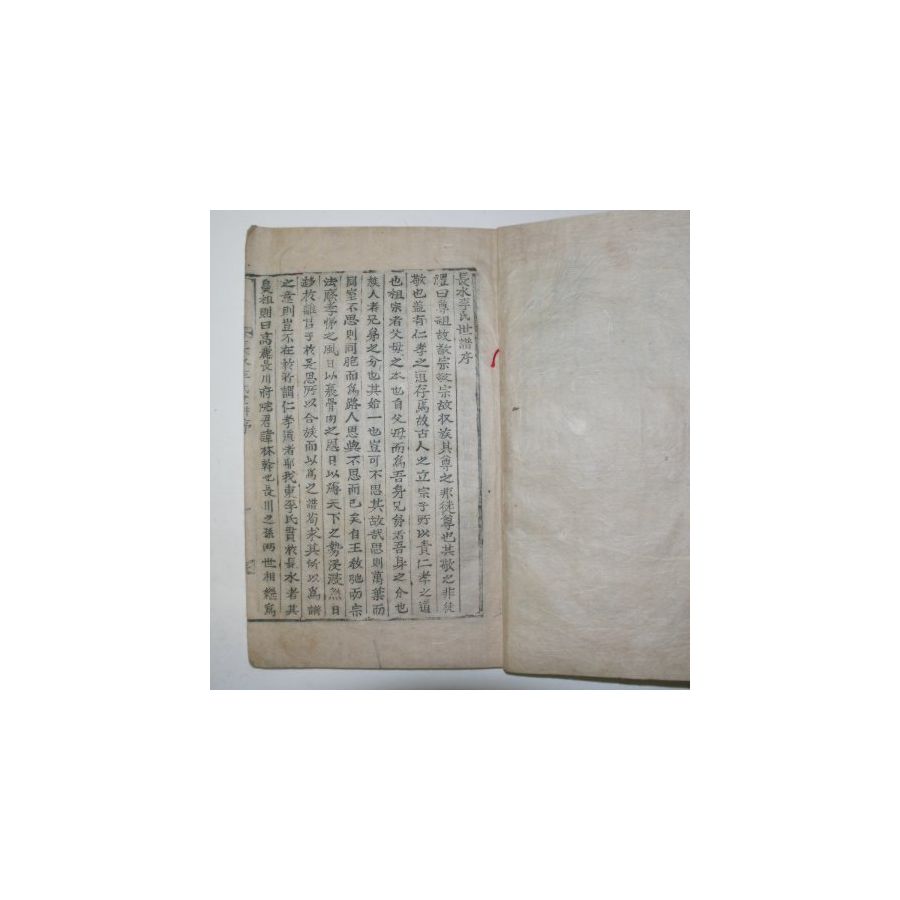 長水李氏世譜序
禮曰尊祖故敬宗敬宗故收族其尊之非徒尊也其敬之非徒
敬也盖有仁孝之道存焉故古人之立宗子所以責仁孝之道
也祖宗者父母之本也自父母而爲吾身兄弟者吾身之分也
族人者兄弟之分也其始一也豈可不思其故哉思則萬葉而
同室不思則同胞而爲路人思與不思而已矣自王敎弛而宗
法廢孝悌之風日以衰骨肉之恩日以薄天下之勢浸淡然日
移於離貳于於是思所以合族而以爲之譜苟求其所以爲譜
之意則豈不在於所謂仁孝道者耶我東李氏貫於長水者其
鼻祖則曰高麗長川府院君諱林幹也長川之孫兩世相繼爲